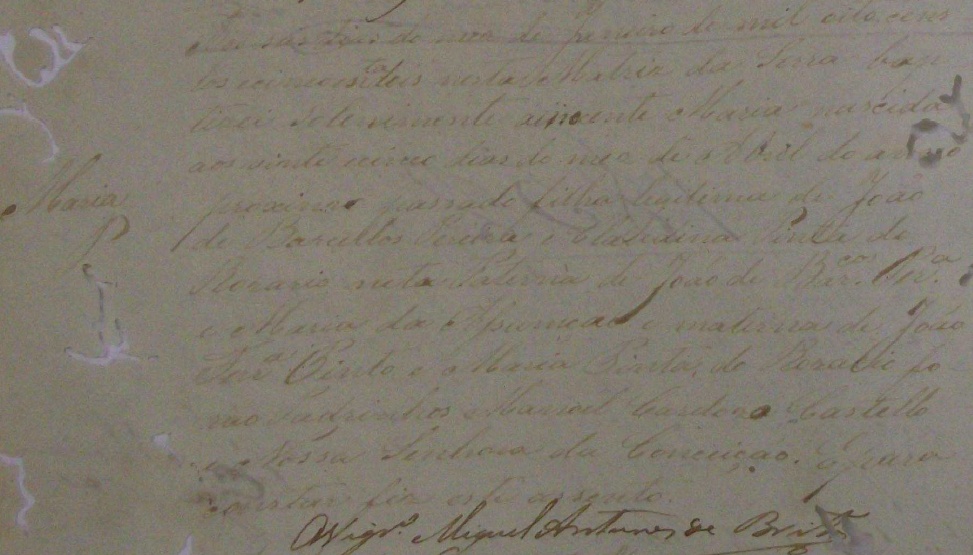 dias do mez de Janeiro de mil oito cen
tos cincoenta e seis nesta Matriz da Serra bap
tizei solenemente a innocente Maria nascida
aos vinte cinco dias do mez de Abril do anno
Maria
proximo passado filha legitima de João
de Barcellos Pereira e Claudina Pinta do
Rosario neta Paterna de João de Bar.cos Pr.a
e Maria da Assumção e materna de João
Pinto e Maria Pinta do Rosario fo
rão Padrinhos Manoel Cardozo Castello
e Nossa Senhora da Conceição. E para
constar fiz este assento.
O Vigr.o Miguel Antunes de Brito